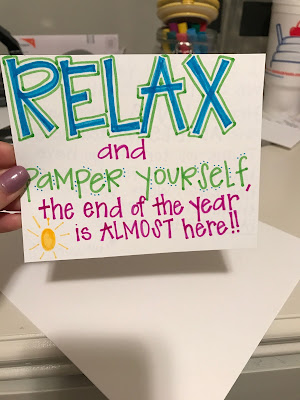 RELAX
and
pamper yourself,
the end of the year
is ALMOST here!!